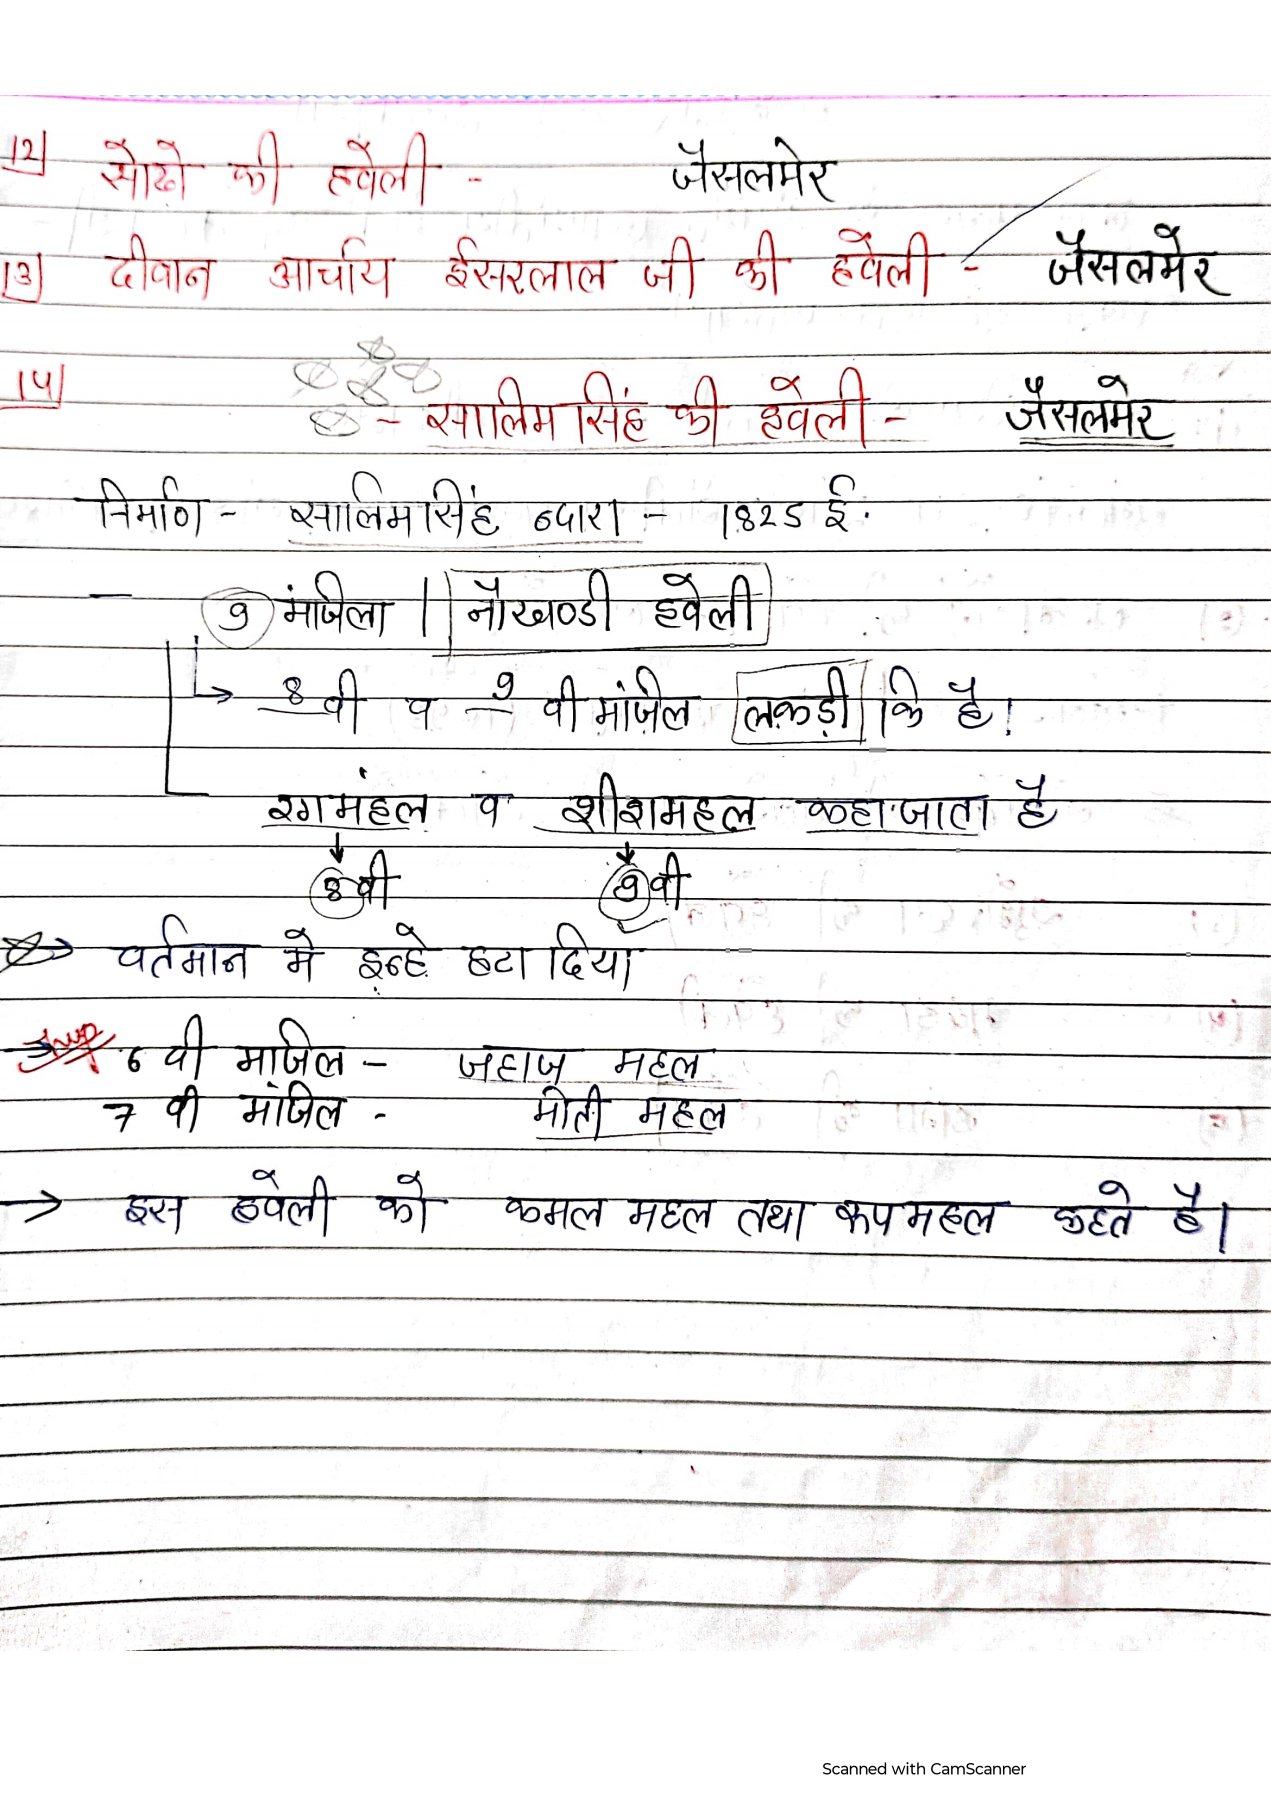 12) सोढो की हवेली - जैसलमेर
13) दीवान आर्चाय ईसरलाल जी की हवेली - जैसलमेर
14) - सालिमसिंह की हवेली - जैसलमेर
निर्माण - सालिमसिंह व्दारा - 1825 ई.
- 9 मंजिला | नौखण्डी हवेली
→ 8 वी व 9 वी मंजिल लकड़ी कि है।
रगमंहल व शीशमहल कहा जाता है
8वी 9वी
→ वर्तमान मे इन्हे हटा दिया
Imp 6 वी मंजिल - जहाज महल
7 वी मंजिल - मोती महल
→ इस हवेली को कमल महल तथा रूपमहल कहते है।
Scanned with CamScanner